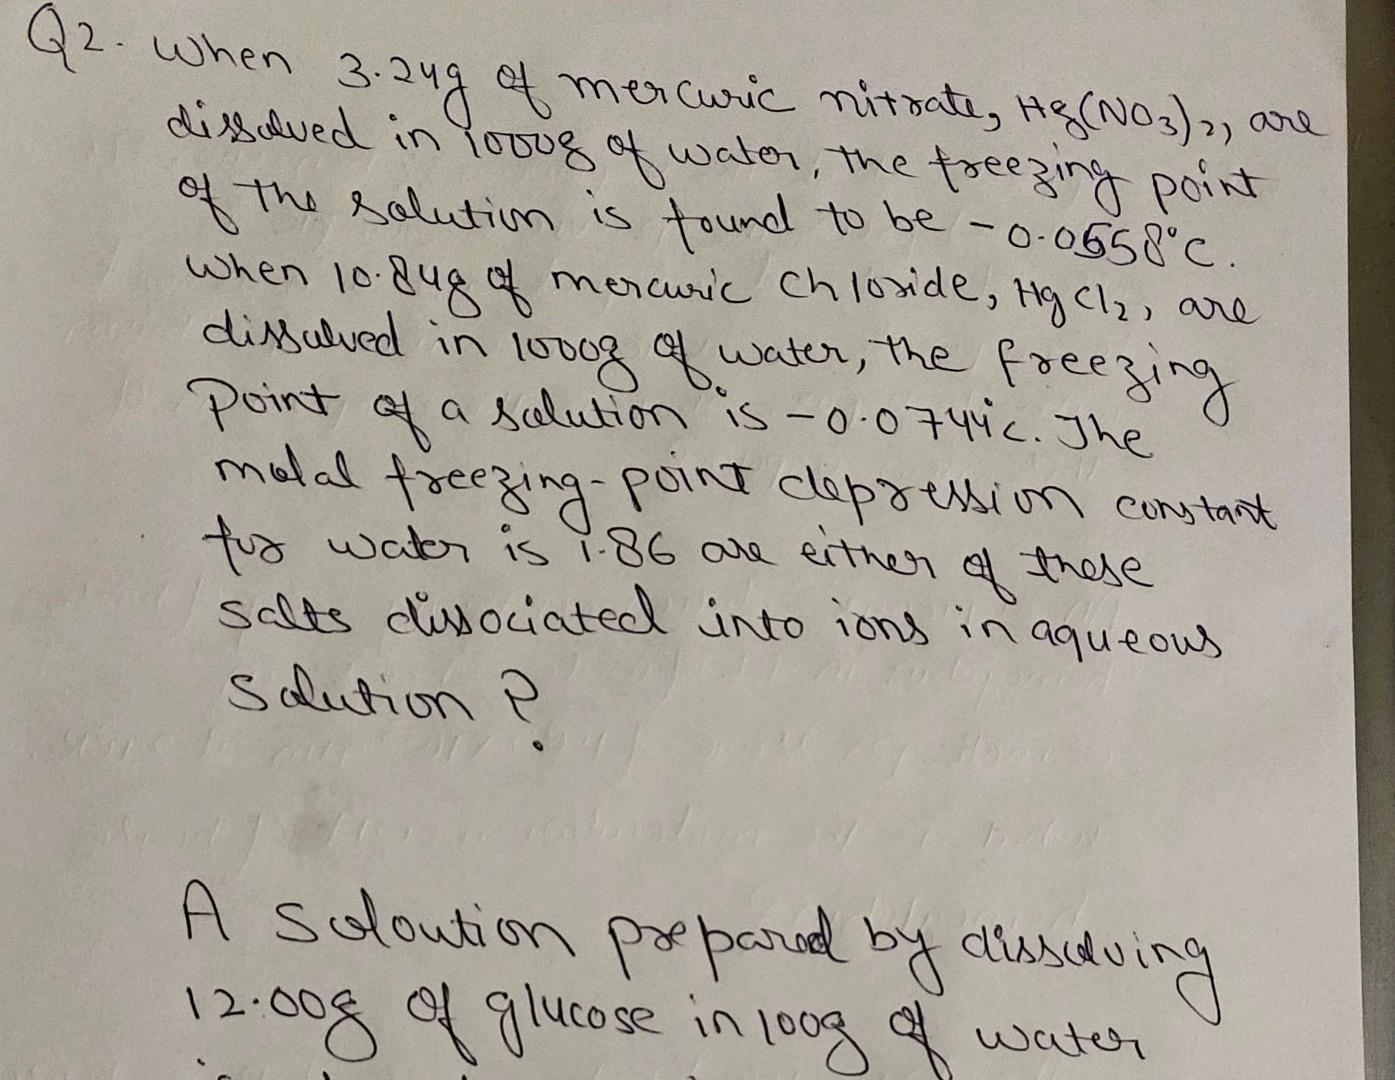 Q2. When 3.24g of mercuric nitrate, Hg(NO3)2, are
dissolved in 1000g of water, the freezing point
of the solution is found to be -0.0558°C.
when 10.84g of mercuric chloride, HgCl2, are
dissolved in 1000g of water, the freezing
point of a solution is -0.0744°C. The
molal freezing-point depression constant
for water is 1.86 are either of these
salts dissociated into ions in aqueous
solution?
A soloution prepared by dissolving
12.00g of glucose in 100g of water